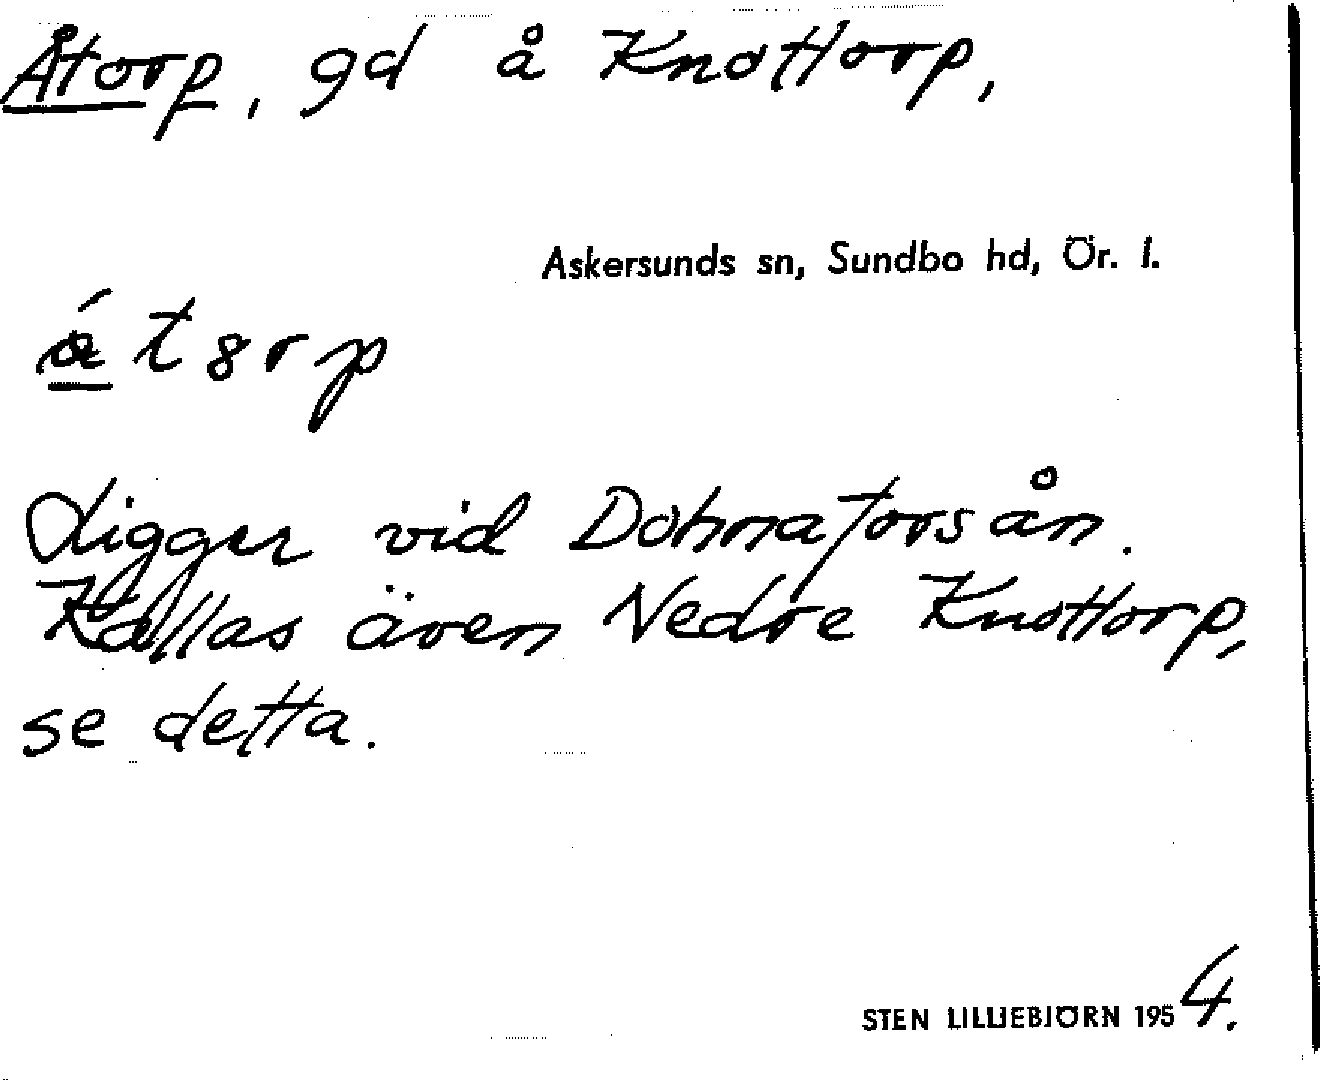 Åtorp, gd å Knottorp,
Askersunds sn, Sundbo hd, Ör. l.
ǻ t 8 r p
Ligger vid Dohnaforsån.
Kallas även Nedre Knottorp,
se detta.
STEN LILLIEBJÖRN 1954.